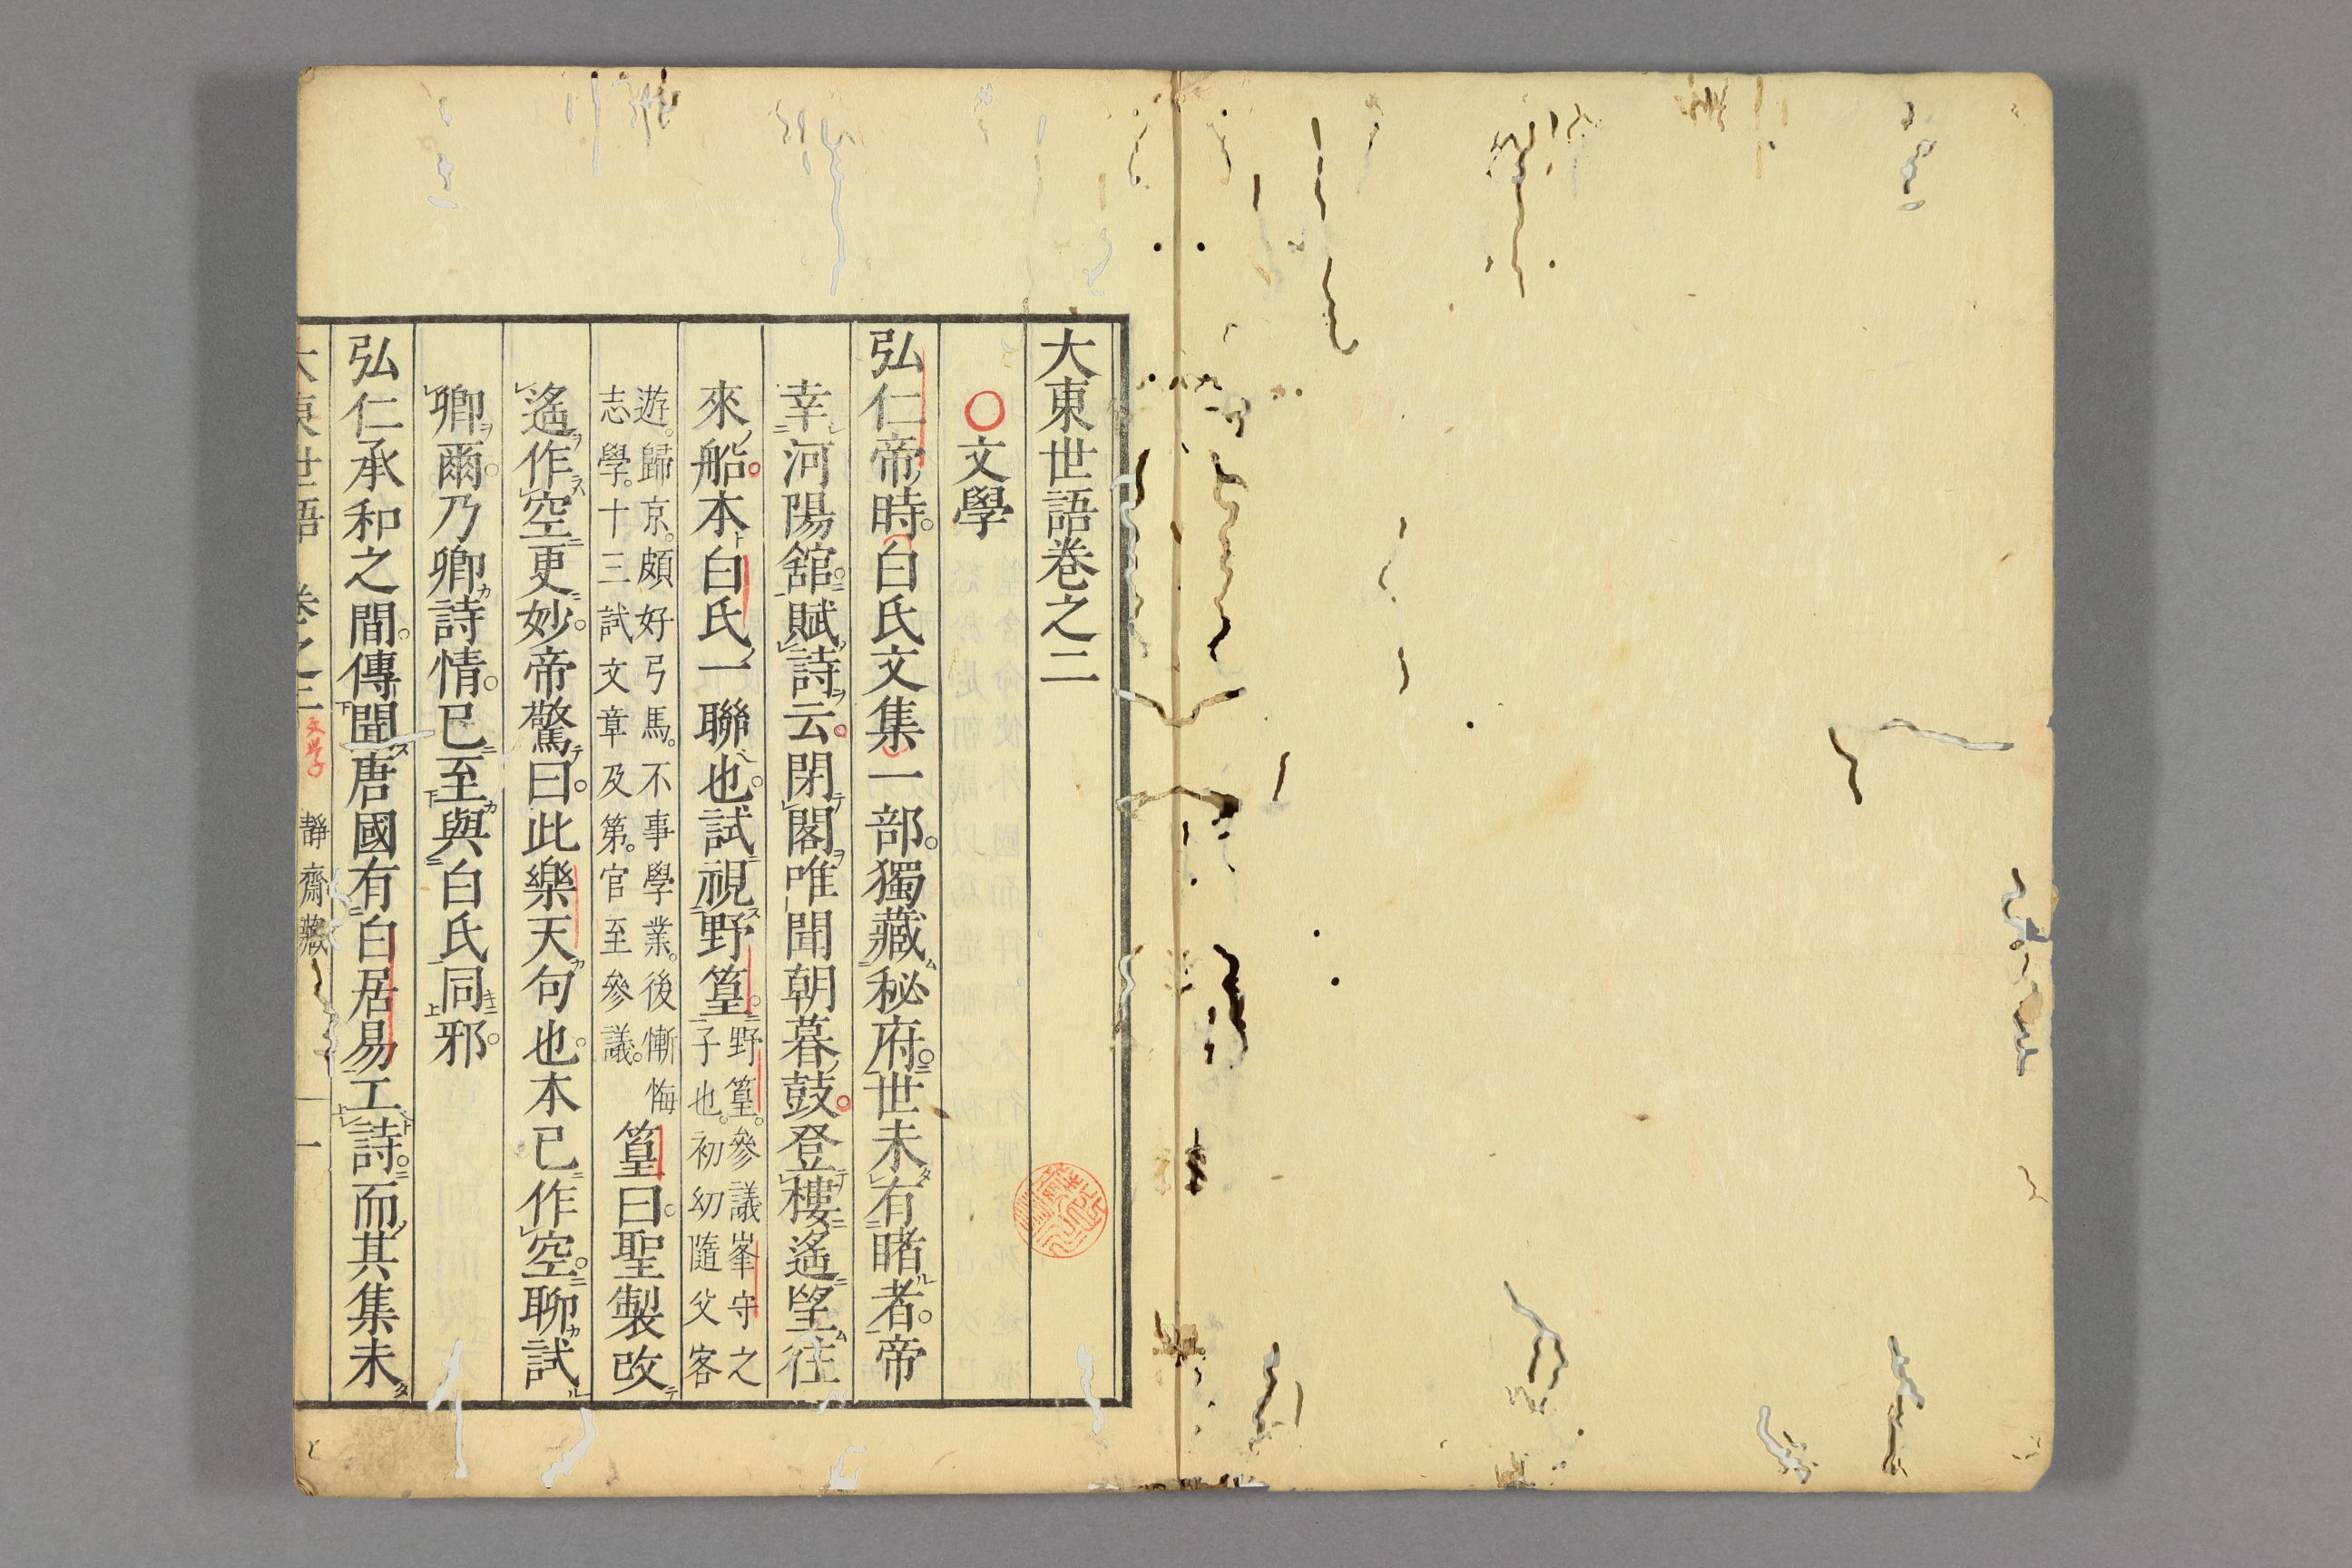 大東世語卷之二
○文學
弘仁帝時。白氏文集一部。獨藏秘府。世未有睹者。帝
幸河陽舘。賦詩云。閉閣唯聞朝暮鼓。登樓遙望往
來船。本白氏一聯也。試視野篁。
野篁。參議峯守之
子也。初幼隨父客
遊。歸京。頗好弓馬。不事學業。後慚悔
志學。十三試文章及第。官至參議。
篁曰。聖製改
遙作空更妙。帝驚曰。此樂天句也。本已作空。聊試
卿爾。乃卿詩情。已至與白氏同邪。
弘仁承和之間。傳聞唐國有白居易工詩。而其集未
大東世語 卷之二 文学 靜齋藏 一